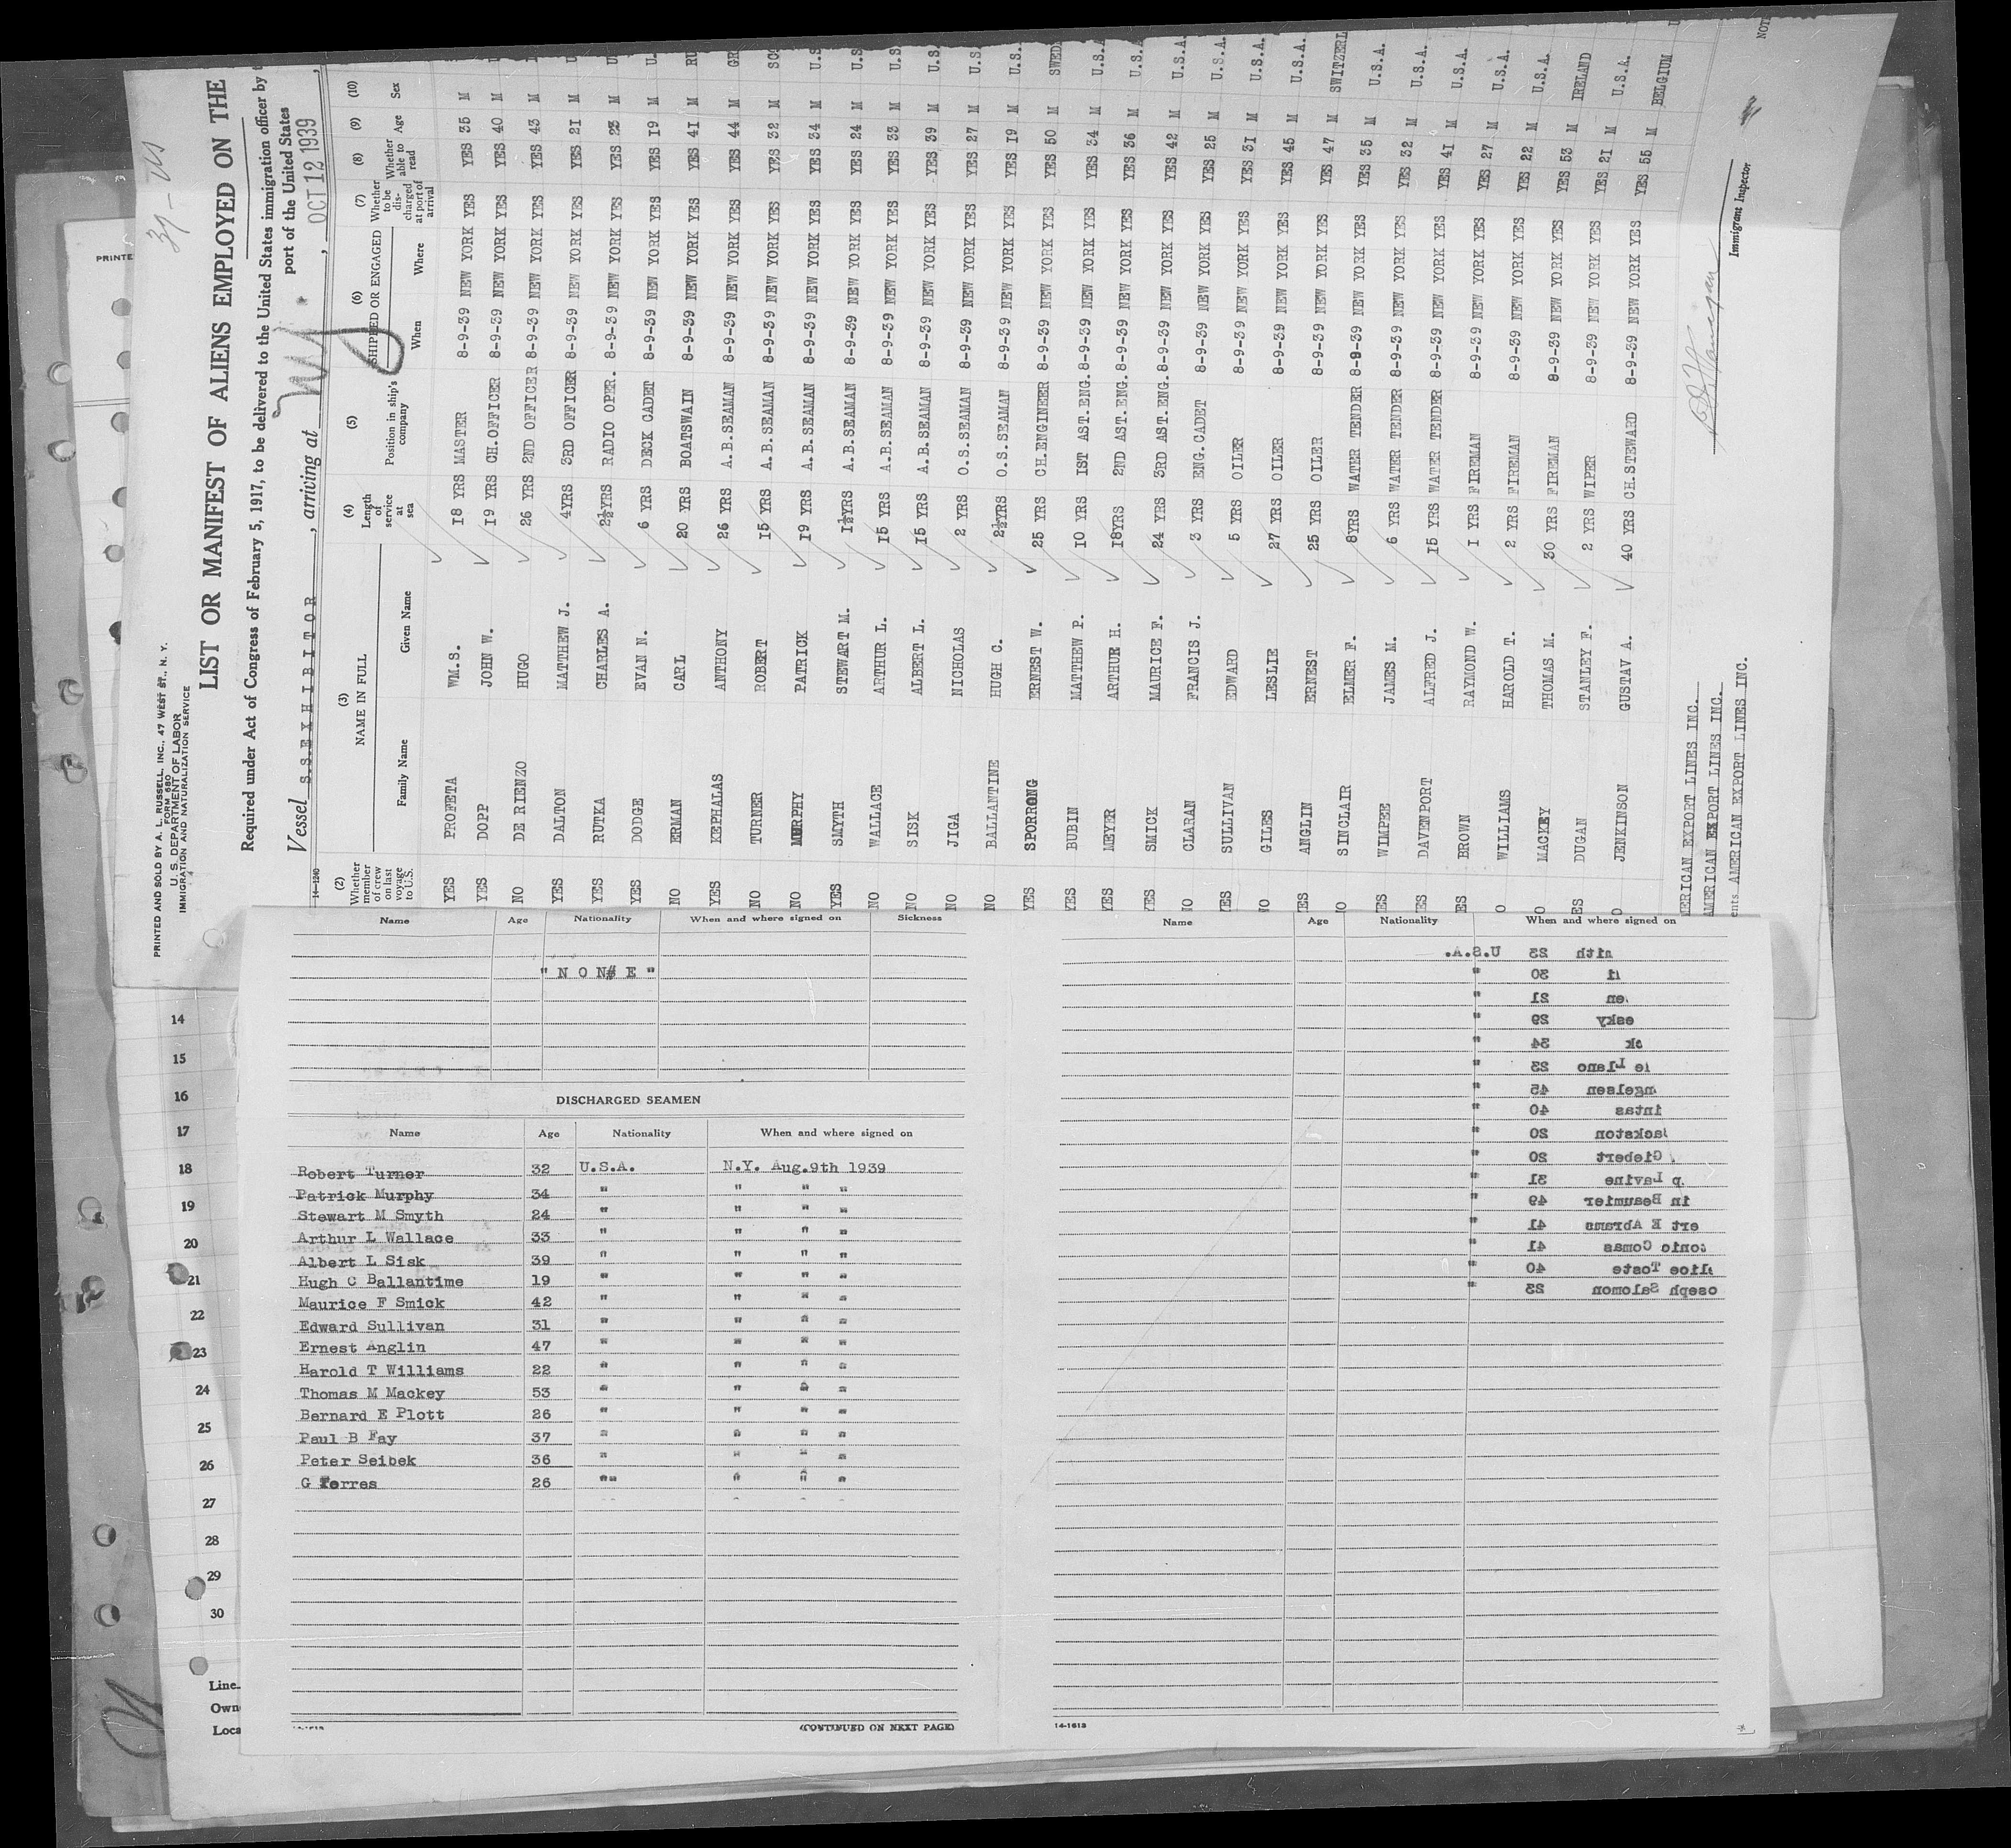 39 - US
PRINTED AND SOLD BY A. L. RUSSELL, INC., 47 WEST ST., N. Y.
FORM 680
U. S. DEPARTMENT OF LABOR
IMMIGRATION AND NATURALIZATION SERVICE
LIST OR MANIFEST OF ALIENS EMPLOYED ON THE
Required under Act of Congress of February 5, 1917, to be delivered to the United States immigration officer by
port of the United States
Vessel S.S.EXHIBITOR , arriving at , OCT 12 1939 ,
14—1240
(2) Whether member of crew on last voyage to U.S. (3) NAME IN FULL Family Name Given Name (4) Length of service at sea (5) Position in ship's company (6) SHIPPED OR ENGAGED When Where (7) Whether to be discharged at port of arrival (8) Whether able to read (9) Age (10) Sex
YES PROFETA WM.S. 18 YRS MASTER 8-9-39 NEW YORK YES YES 35 M
YES DOPP JOHN W. 19 YRS CH.OFFICER 8-9-39 NEW YORK YES YES 40 M
NO DE RIENZO HUGO 26 YRS 2ND OFFICER 8-9-39 NEW YORK YES YES 43 M
YES DALTON MATTHEW J. 4YRS 3RD OFFICER 8-9-39 NEW YORK YES YES 21 M
YES RUTKA CHARLES A. 2½YRS RADIO OPER. 8-9-39 NEW YORK YES YES 23 M
YES DODGE EVAN N. 6 YRS DECK CADET 8-9-39 NEW YORK YES YES 19 M U.
NO ERMAN CARL 20 YRS BOATSWAIN 8-9-39 NEW YORK YES YES 41 M RU
YES KEPHALAS ANTHONY 26 YRS A.B.SEAMAN 8-9-39 NEW YORK YES YES 44 M GR
NO TURNER ROBERT 15 YRS A.B.SEAMAN 8-9-39 NEW YORK YES YES 32 M SCO
NO MURPHY PATRICK 19 YRS A.B.SEAMAN 8-9-39 NEW YORK YES YES 34 M U.S
YES SMYTH STEWART M. 1½YRS A.B.SEAMAN 8-9-39 NEW YORK YES YES 24 M U.S
NO WALLACE ARTHUR L. 15 YRS A.B.SEAMAN 8-9-39 NEW YORK YES YES 33 M U.S
NO SISK ALBERT L. 15 YRS A.B.SEAMAN 8-9-39 NEW YORK YES YES 39 M U.S.
NO JIGA NICHOLAS 2 YRS O.S.SEAMAN 8-9-39 NEW YORK YES YES 27 M U.S.
NO BALLANTINE HUGH C. 2½YRS O.S.SEAMAN 8-9-39 NEW YORK YES YES 19 M U.S.
YES SPORRONG ERNEST W. 25 YRS CH.ENGINEER 8-9-39 NEW YORK YES YES 50 M SWED
YES BUBIN MATTHEW P. 10 YRS IST AST.ENG. 8-9-39 NEW YORK YES YES 34 M U.S.A
YES MEYER ARTHUR H. 18YRS 2ND AST.ENG. 8-9-39 NEW YORK YES YES 36 M U.S.A.
YES SMICK MAURICE F. 24 YRS 3RD AST.ENG. 8-9-39 NEW YORK YES YES 42 M U.S.A.
NO CLARAN FRANCIS J. 3 YRS ENG.CADET 8-9-39 NEW YORK YES YES 25 M U.S.A.
YES SULLIVAN EDWARD 5 YRS OILER 8-9-39 NEW YORK YES YES 31 M U.S.A.
NO GILES LESLIE 27 YRS OILER 8-9-39 NEW YORK YES YES 45 M U.S.A.
YES ANGLIN ERNEST 25 YRS OILER 8-9-39 NEW YORK YES YES 47 M SWITZERL
O SINCLAIR ELMER F. 8YRS WATER TENDER 8-9-39 NEW YORK YES YES 35 M U.S.A.
YES WIMPEE JAMES M. 6 YRS WATER TENDER 8-9-39 NEW YORK YES YES 32 M U.S.A.
YES DAVENPORT ALFRED J. 15 YRS WATER TENDER 8-9-39 NEW YORK YES YES 41 M U.S.A.
ES BROWN RAYMOND W. 1 YRS FIREMAN 8-9-39 NEW YORK YES YES 27 M U.S.A.
O WILLIAMS HAROLD T. 2 YRS FIREMAN 8-9-39 NEW YORK YES YES 22 M U.S.A.
O MACKEY THOMAS M. 30 YRS FIREMAN 8-9-39 NEW YORK YES YES 53 M IRELAND
ES DUGAN STANLEY F. 2 YRS WIPER 8-9-39 NEW YORK YES YES 21 M U.S.A.
O JENKINSON GUSTAV A. 40 YRS CH.STEWARD 8-9-39 NEW YORK YES YES 55 M BELGIUM
MERICAN EXPORT LINES INC.
AMERICAN EXPORT LINES INC.
ents AMERICAN EXPORT LINES INC.
Immigrant Inspector
NOT
PRINTE
14
15
16
17
18
19
20
21
22
23
24
25
26
27
28
29
30
Line
Own
Loca
Name Age Nationality When and where signed on Sickness
" N O N E "
DISCHARGED SEAMEN
Name Age Nationality When and where signed on
Robert Turner 32 U.S.A. N.Y. Aug.9th 1939
Patrick Murphy 34 " " " "
Stewart M Smyth 24 " " " "
Arthur L Wallace 33 " " " "
Albert L Sisk 39 " " " "
Hugh C Ballantime 19 " " " "
Maurice F Smick 42 " " " "
Edward Sullivan 31 " " " "
Ernest Anglin 47 " " " "
Harold T Williams 22 " " " "
Thomas M Mackey 53 " " " "
Bernard E Plott 26 " " " "
Paul B Fay 37 " " " "
Peter Seibek 36 " " "
G Torres 26 "" " " "
(CONTINUED ON NEXT PAGE)
Name Age Nationality When and where signed on
aith 23 U.S.A.
30 "
en 21 "
esky 29 "
ck 34 "
de Llano 23 "
ngelsen 45 "
intas 40 "
Jackston 20 "
Giebert 20 "
p Lavine 31 "
in Beaumier 49 "
ert E Abrams 41 "
tonio Comas 41 "
lice Toste 40 "
oseph Salomon 23 "
14-1613